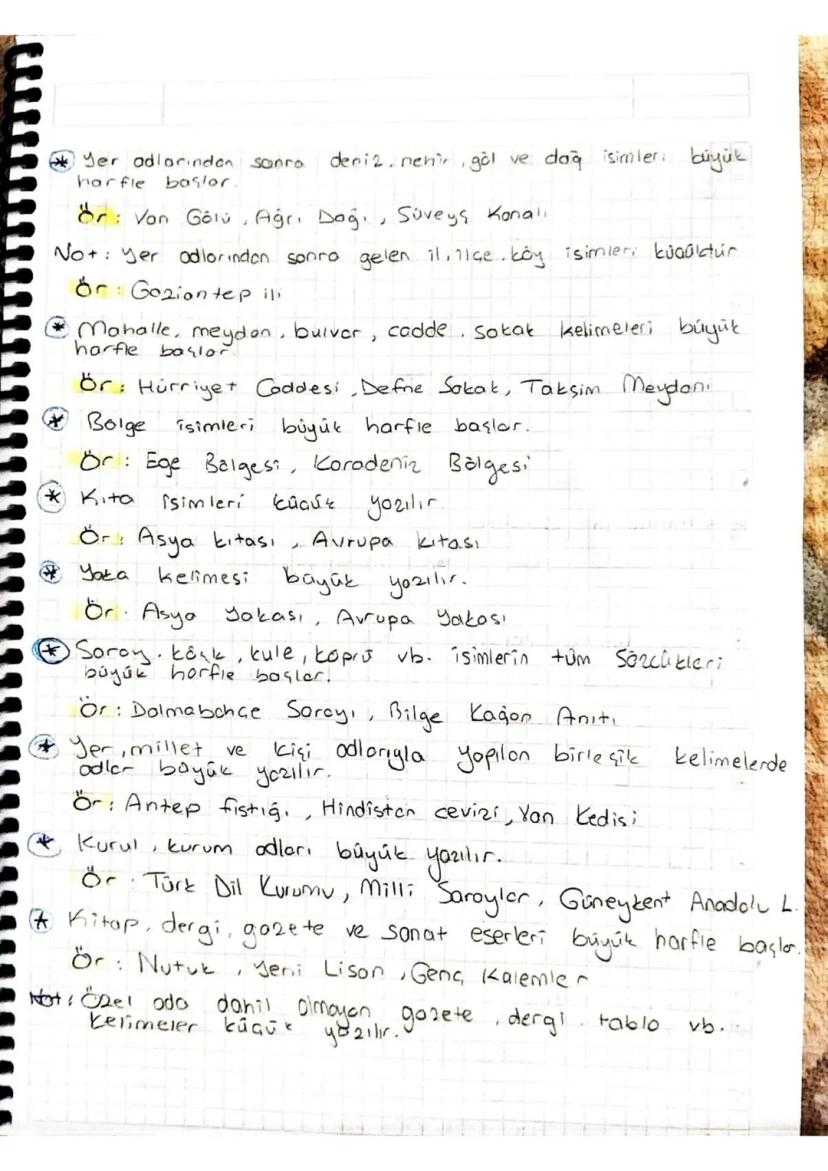 * Yer adlarından sonra deniz, nehir, göl ve dağ isimleri büyük
harfle başlar.
Ör: Van Gölü, Ağrı Dağı, Süveyş Kanalı
Not: Yer adlarından sonra gelen il, ilçe, köy isimleri küçüktür
Ör: Gaziantep ili
* Mahalle, meydan, bulvar, cadde, sokak kelimeleri büyük
harfle başlar.
Ör: Hürriyet Caddesi, Defne Sokak, Taksim Meydanı
* Bölge isimleri büyük harfle başlar.
Ör: Ege Bölgesi, Karadeniz Bölgesi
* Kıta isimleri küçük yazılır.
Ör: Asya kıtası, Avrupa kıtası
* Yaka kelimesi büyük yazılır.
Ör: Asya Yakası, Avrupa Yakası
* Saray, köşk, kule, köprü vb. isimlerin tüm sözcükleri
büyük harfle başlar.
Ör: Dolmabahçe Sarayı, Bilge Kağan Anıtı
* Yer, millet ve kişi adlarıyla yapılan birleşik kelimelerde
adlar büyük yazılır.
Ör: Antep fıstığı, Hindistan cevizi, Van Kedisi
* Kurul, kurum adları büyük yazılır.
Ör: Türk Dil Kurumu, Milli Saraylar, Güneykent Anadolu L.
* Kitap, dergi, gazete ve sanat eserleri büyük harfle başlar.
Ör: Nutuk, Yeni Lisan, Genç Kalemler
Not: Özel ada dahil olmayan gazete, dergi, tablo vb.
kelimeler küçük yazılır.